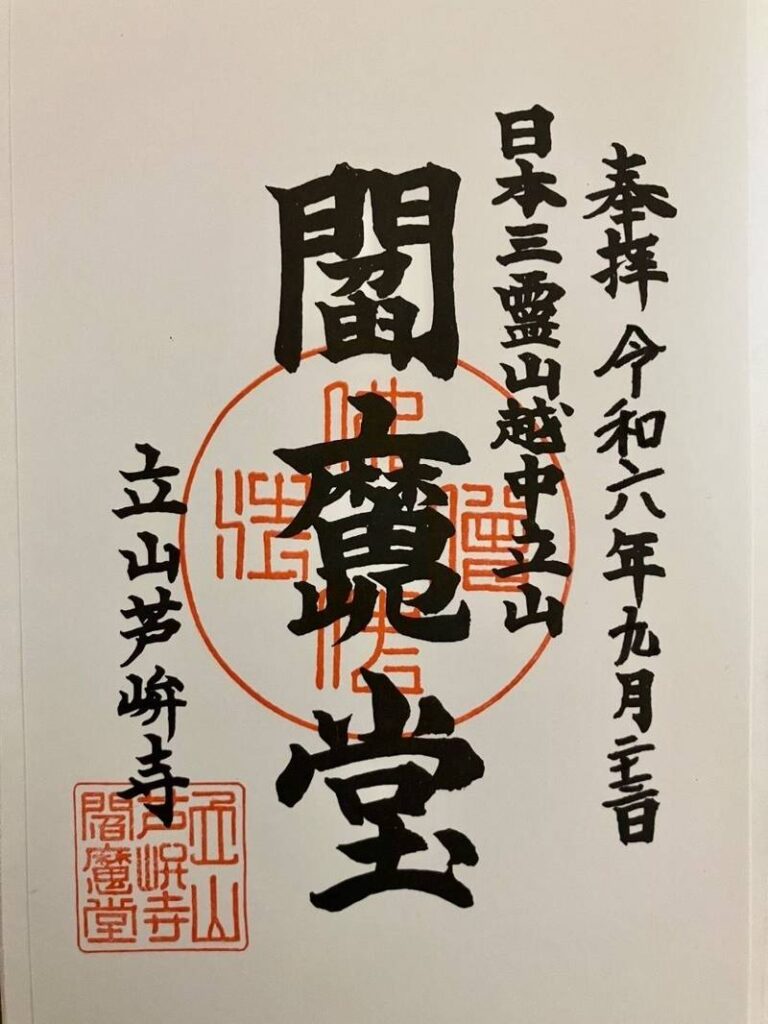 奉拝 令和六年九月二十三日
日本三霊山越中立山
閻魔堂
立山芦峅寺
佛
法
僧
立山
芦峅寺
閻魔堂